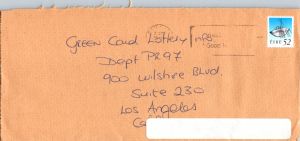 Green Card Lottery
Dept PR97
900 Wilshire Blvd.
Suite 230
Los Angeles
éire 52